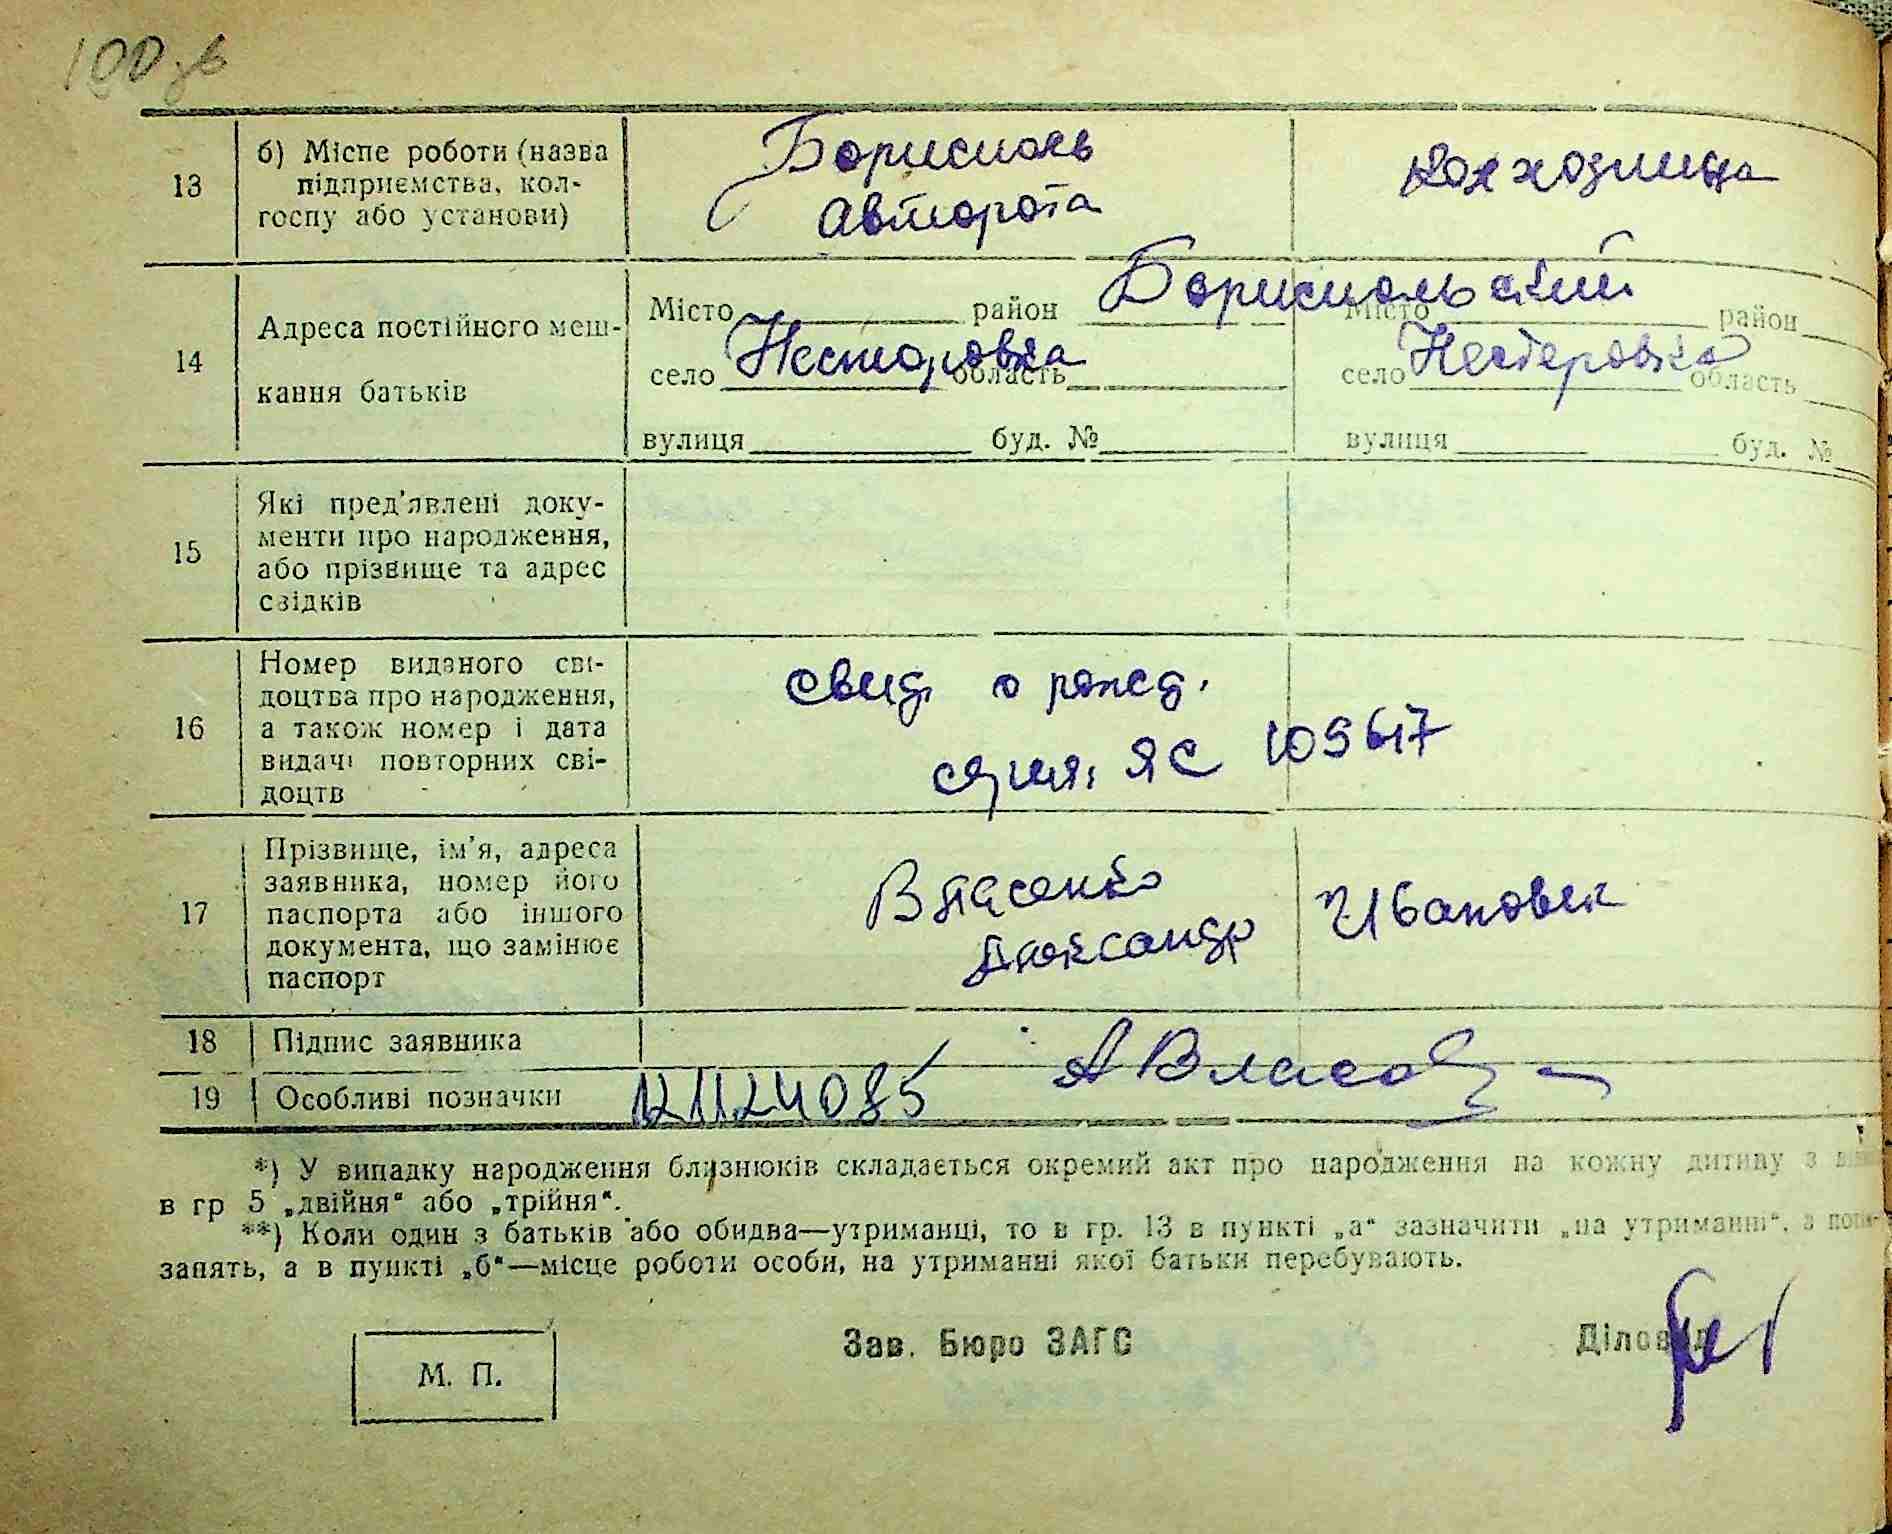 100 зв
13
б) Місце роботи (назва
підприємства, кол-
госпу або установи)
Борисполь
Авторота
Колхозница
14
Адреса постійного меш-
кання батьків
Місто район Бориспольский
село Несторовка область
вулиця буд. №
Місто район
село Нестеровка область
вулиця буд. №
15
Які пред'явлені доку-
менти про народження,
або прізвище та адрес
свідків
16
Номер виданого сві-
доцтва про народження,
а також номер і дата
видачі повторних сві-
доцтв
свид. о рожд.
серия ЯС 109617
17
Прізвище, ім'я, адреса
заявника, номер його
паспорта або іншого
документа, що замінює
паспорт
Власенко
Александр Иванович
18 Підпис заявника
А Власо
19 Особливі позначки
121124085
*) У випадку народження близнюків складається окремий акт про народження на кожну дитину з
в гр 5 „двійня“ або „трійня“.
**) Коли один з батьків або обидва—утриманці, то в гр. 13 в пункті „а“ зазначити „на утриманні“, а попе-
занять, а в пункті „б“—місце роботи особи, на утриманні якої батьки перебувають.
Зав. Бюро ЗАГС
Діловод
М. П.